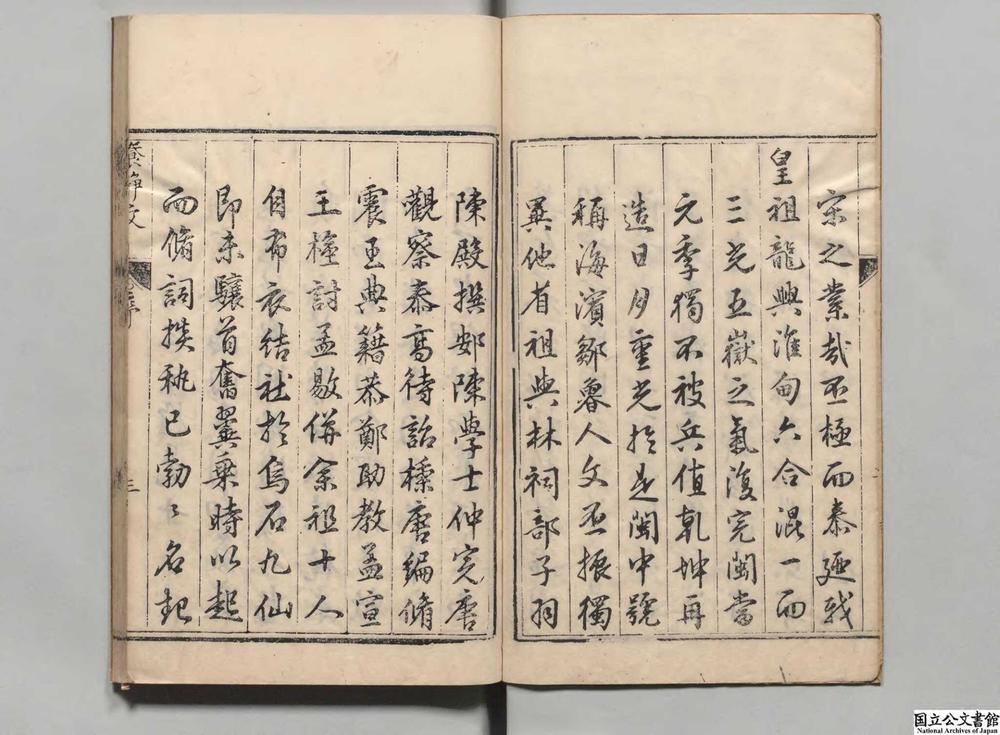 宋之業哉丕極而泰廼我
皇祖龍興淮甸六合混一而
三光五嶽之氣復完閩當
元季獨不被兵值乾坤再
造日月重光於是閩中號
稱海濱鄒魯人文丕振獨
異他省祖與林祠部子羽
陳殿撰郊陳學士仲完唐
觀察泰高待詔棅唐編脩
震王典籍恭鄭助教孟宣
王檢討孟敭併余祖十人
自布衣結社於烏石九仙
即未驤首奮翼乘時以起
而脩詞掞秇已勃〻名起
三
国立公文書館
National Archives of Japan